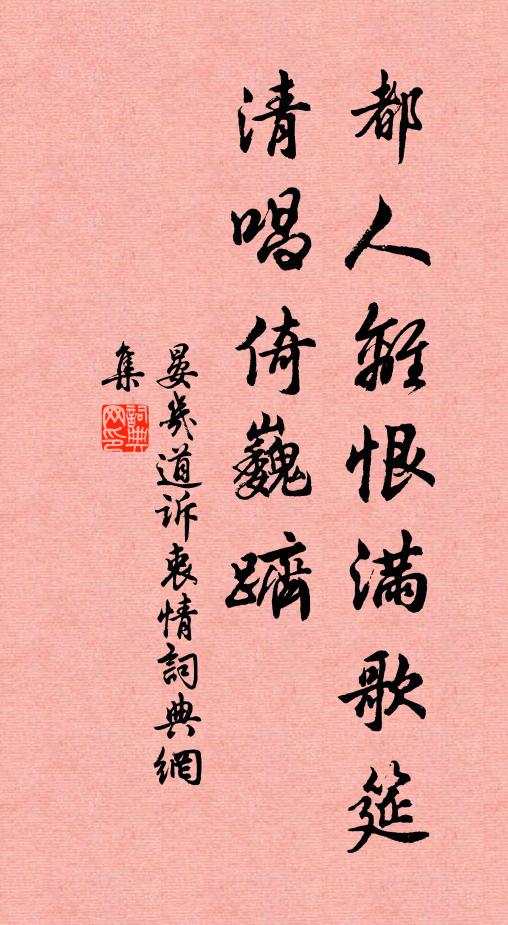 都人離恨滿歌筵
清唱倚巍躋
晏幾道訴衷情詞典網
集
詞典
网印